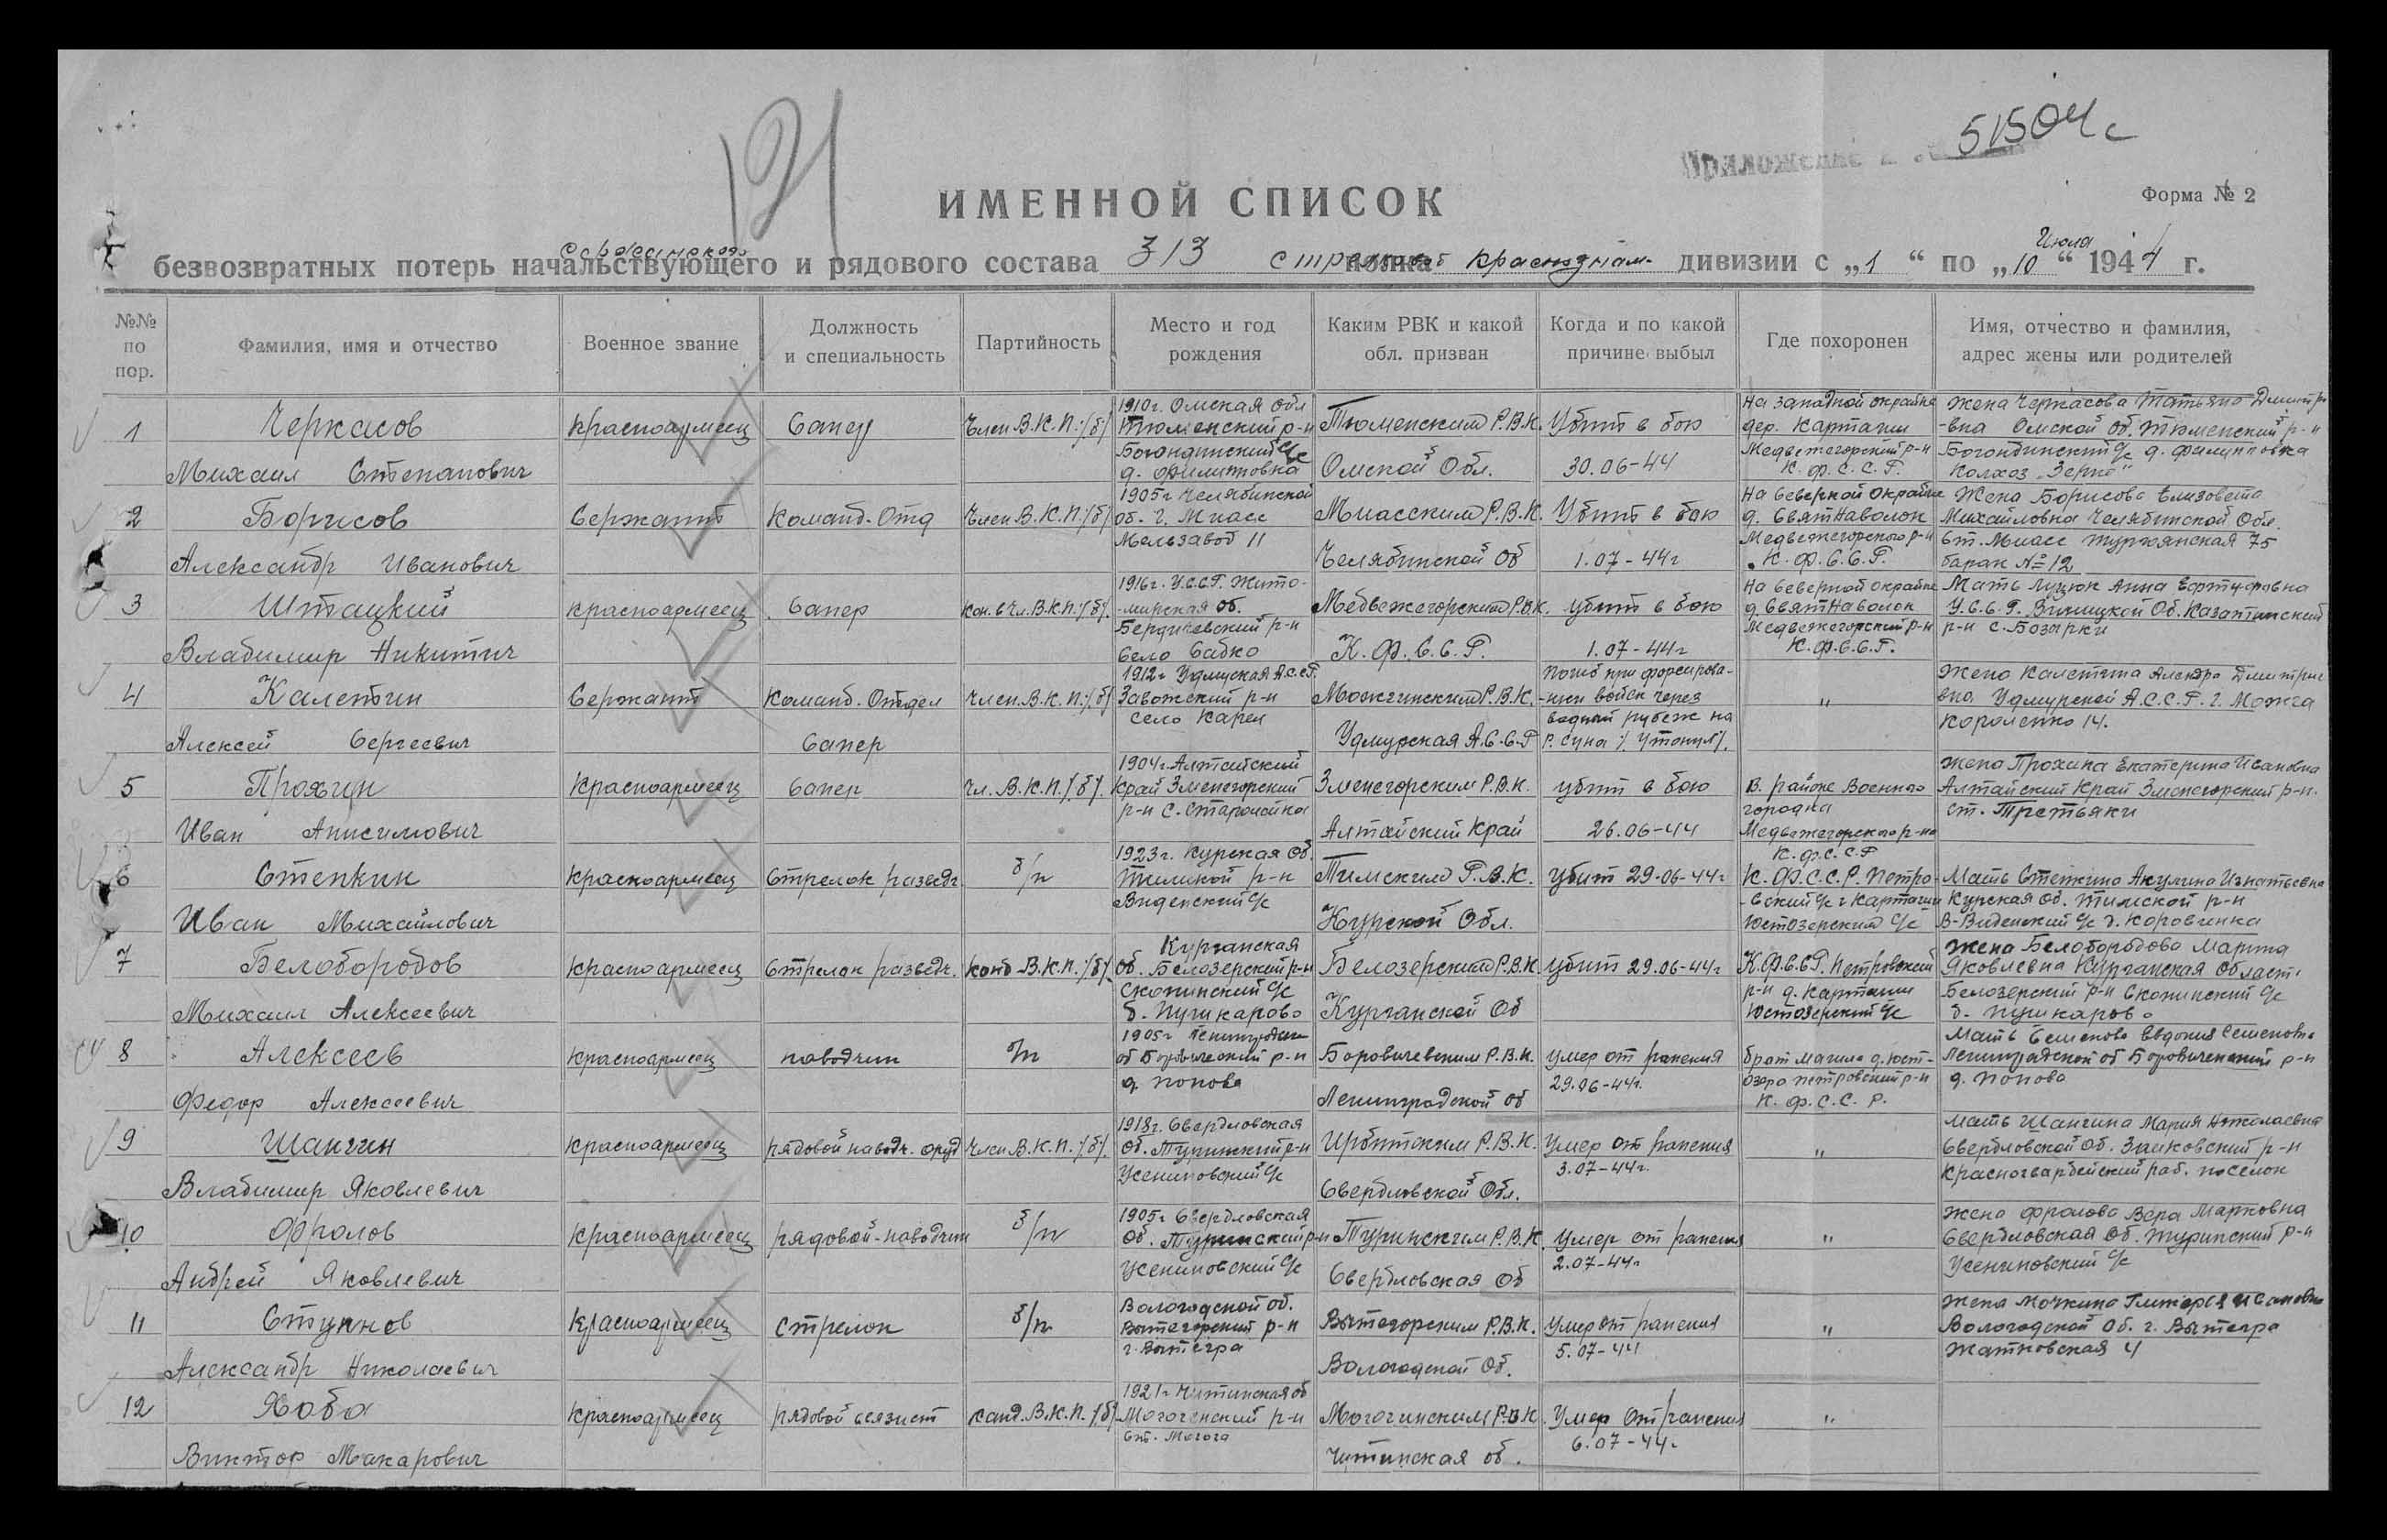 121
51504с
Приложение
ИМЕННОЙ СПИСОК
Форма № 2
безвозвратных потерь начальствующего и рядового состава 313 Краснознам. дивизии с „1“ по „10“ Июля 1944 г.
№№ по пор.
Фамилия, имя и отчество
Военное звание
Должность и специальность
Партийность
Место и год рождения
Каким РВК и какой обл. призван
Когда и по какой причине выбыл
Где похоронен
Имя, отчество и фамилия, адрес жены или родителей
1
Черкасов
Михаил Степанович
Красноармеец
Сапер
Член В.К.П./б/
1910г. Омская обл
Тюменский р-н
д. Филипповка
Тюменским Р.В.К.
Омской Обл.
Убит в бою
30.06-44
На западной окраине
дер. Карташи
Медвежегорский р-н
К.Ф.С.С.Р.
Жена Черкасова Татьяна Дмитри
-вна Омской Об. Тюменский р-н
Богандинский с/с д. Филипповка
Колхоз „Зерно“
2
Борисов
Александр Иванович
Сержант
Команд. Отд
Член В.К.П./б/
1905г Челябинской
об. г. Миасс
Мельзавод 11
Миасским Р.В.К.
Челябинской Об
Убит в бою
1.07-44г
На Северной окраине
д. СвятНаволок
Медвежегорского р-н
К.Ф.С.С.Р.
Жена Борисова Елизовета
Михайловна Челябинской Обл.
ст. Миасс 75
барак № 12
3
Штацкий
Владимир Никитич
Красноармеец
Сапер
Кан. в Чл. В.К.П./б/.
1916г. У.С.С.Р. Жито-
-мирская об.
Бердичевский р-н
Село
Медвежегорским Р.В.К.
К.Ф.С.С.Р.
убит в бою
1.07-44г
На Северной окраине
д. СвятНаволок
Медвежегорский р-н
К.Ф.С.С.Р.
Мать Луцюк Анна
У.С.С.Р. Об. Казатинский
р-н с.
4
Калентин
Алексей Сергеевич
Сержант
Команд. Отдел
Сапер
Член. В.К.П./б/
1912г Удмуская А.С.С.Р.
р-н
село
Можгинским Р.В.К.
Удмурская А.С.С.Р
Погиб при форсирова-
-нии войск через
водный рубеж на
р. Суна /Утонул/.
"
Жена
вна Удмурской А.С.С.Р. г. Можга
Короленко 14.
5
Прохин
Иван Анисимович
Красноармеец
Сапер
Чл. В.К.П./б/.
1904г. Алтайский
край Змеиногорский
р-н с.
Змеиегорским Р.В.К.
Алтайский Край
убит в бою
26.06-44
В районе Военного
городка
Медвежегорского р-на
К.Ф.С.С.Р
Жена Прохина Екатерина Ивановна
Алтайский Край Змеиегорский р-н.
ст. Третьяки
6
Степкин
Иван Михайлович
Красноармеец
Стрелок разведч.
б/п
1923г. Курская Об.
Тимской р-н
с/с
Тимским Р.В.К.
Курской Обл.
убит 29.06-44г
К.Ф.С.С.Р. Петро-
-вский
Юстозерский с/с
Мать Степкина Акулина Игнатьевна
Курская Об. Тимской р-н
7
Белобородов
Михаил Алексеевич
Красноармеец
Стрелок разведч.
Канд В.К.П./б/
Курганская
об. Белозерский р-н
Скопинский с/с
д. Пушкарово
Белозерским Р.В.К
Курганской Об
убит 29.06-44г
К.Ф.С.С.Р. Петровский
р-н д. Карташи
Юстозерский с/с
Жена Белобородова Мария
Яковлевна Курганская Област.
Белозерский р-н Скопинский с/с
д. Пушкарово
8
Алексеев
Федор Алексеевич
Красноармеец
наводчик
б/п
1905г
об Боровический р-н
д. Попова
Боровичевским Р.В.К.
Ленинградской об
умер от ранения
29.06-44г.
брат могила д. Юст-
озеро Петровский р-н
К.Ф.С.С.Р.
Мать Семенова Евдокия Семеновна
Ленинградской об Боровиченский р-н
д. Попово
9
Шангин
Владимир Яковлевич
Красноармеец
рядовой наводч. оруд
Член В.К.П./б/.
1918г. Свердловская
Об. Туринский р-н
Усениновский с/с
Ирбитским Р.В.К.
Свердловской Обл.
Умер от ранения
3.07-44г.
"
Мать Шангина Мария Николаевна
Свердловской Об. Зайковский р-н
Красногвардейский раб. поселок
10
Фролов
Андрей Яковлевич
Красноармеец
рядовой-наводчик
б/п
1905г Свердловская
Об. Туринский р-н
Усениновский с/с
Туринским Р.В.К.
Свердловская Об
Умер от ранения
2.07-44г
"
Жена Фролова Вера Марковна
Свердловская Об. Туринский р-н
Усениновский с/с
11
Ступнов
Александр Николаевич
Красноармеец
Стрелок
б/п
Вологодской об.
Вытегорский р-н
г. Вытегра
Вытегорским Р.В.К.
Вологодской Об.
Умер от ранения
5.07-44
"
Жена
Вологодской Об. г. Вытегра
12
Хабо
Виктор Макарович
Красноармеец
рядовой связист
Канд. В.К.П. /б/
1921г Читинская об
Могочинский р-н
ст. Могоча
Могочинским Р.В.К.
Читинская об.
Умер от ранения
6.07-44г
"